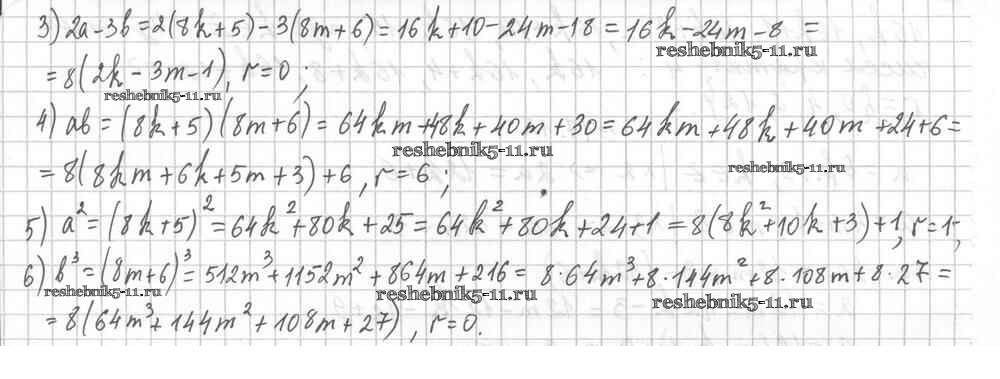 3) 2a-3b=2(8k+5)-3(8m+6)=16k+10-24m-18=16k-24m-8=
reshebnik5-11.ru
=8(2k-3m-1), r=0;
reshebnik5-11.ru
4) ab=(8k+5)(8m+6)=64km+48k+40m+30=64km+48k+40m+24+6=
reshebnik5-11.ru
=8(8km+6k+5m+3)+6, r=6;
reshebnik5-11.ru
5) a²=(8k+5)²=64k²+80k+25=64k²+80k+24+1=8(8k²+10k+3)+1, r=1;
6) b³=(8m+6)³=512m³+1152m²+864m+216=8·64m³+8·144m²+8·108m+8·27=
reshebnik5-11.ru reshebnik5-11.ru reshebnik5-11.ru
=8(64m³+144m²+108m+27), r=0.